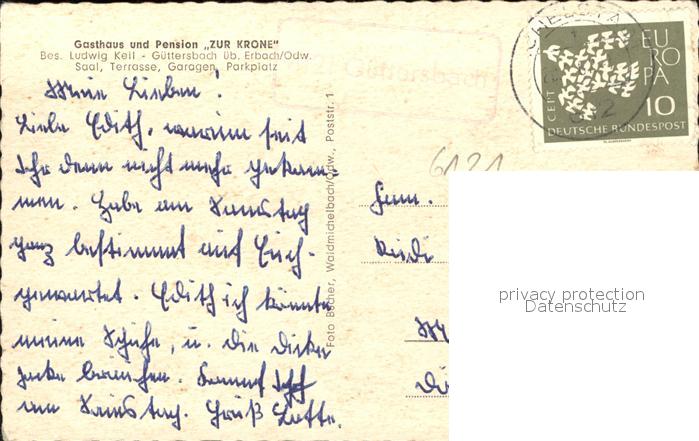 Gasthaus und Pension „ZUR KRONE"
Bes. Ludwig Keil - Güttersbach üb. Erbach/Odw.
Saal, Terrasse, Garagen, Parkplatz
Meine Lieben!
Liebe Edith, warum seit
Ihr denn nicht mehr gekom-
men. Habe am Samstag
ganz bestimmt auf Euch
gewartet. Edith ich könnte
meine Schuhe, u. die dicke
Jacke brauchen. Kommt
am Samstag. Gruß Lotte.
Foto Bucher, Waldmichelbach/Odw., Poststr. 1
Güttersbach
EUROPA
CEPT
10
DEUTSCHE BUNDESPOST
6121
Fam.
privacy protection
Datenschutz